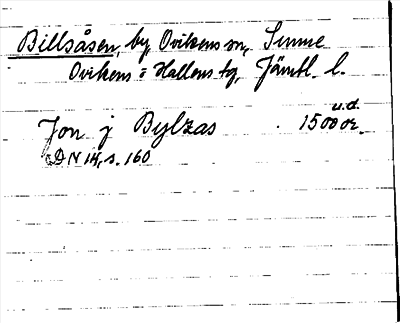 Billsåsen, by, Ovikens sn, Sunne
Ovikens o Hallens tg, Jämtl. l.
Jon j Bylzas 1500 or.
u.d.
DN 14, s. 160